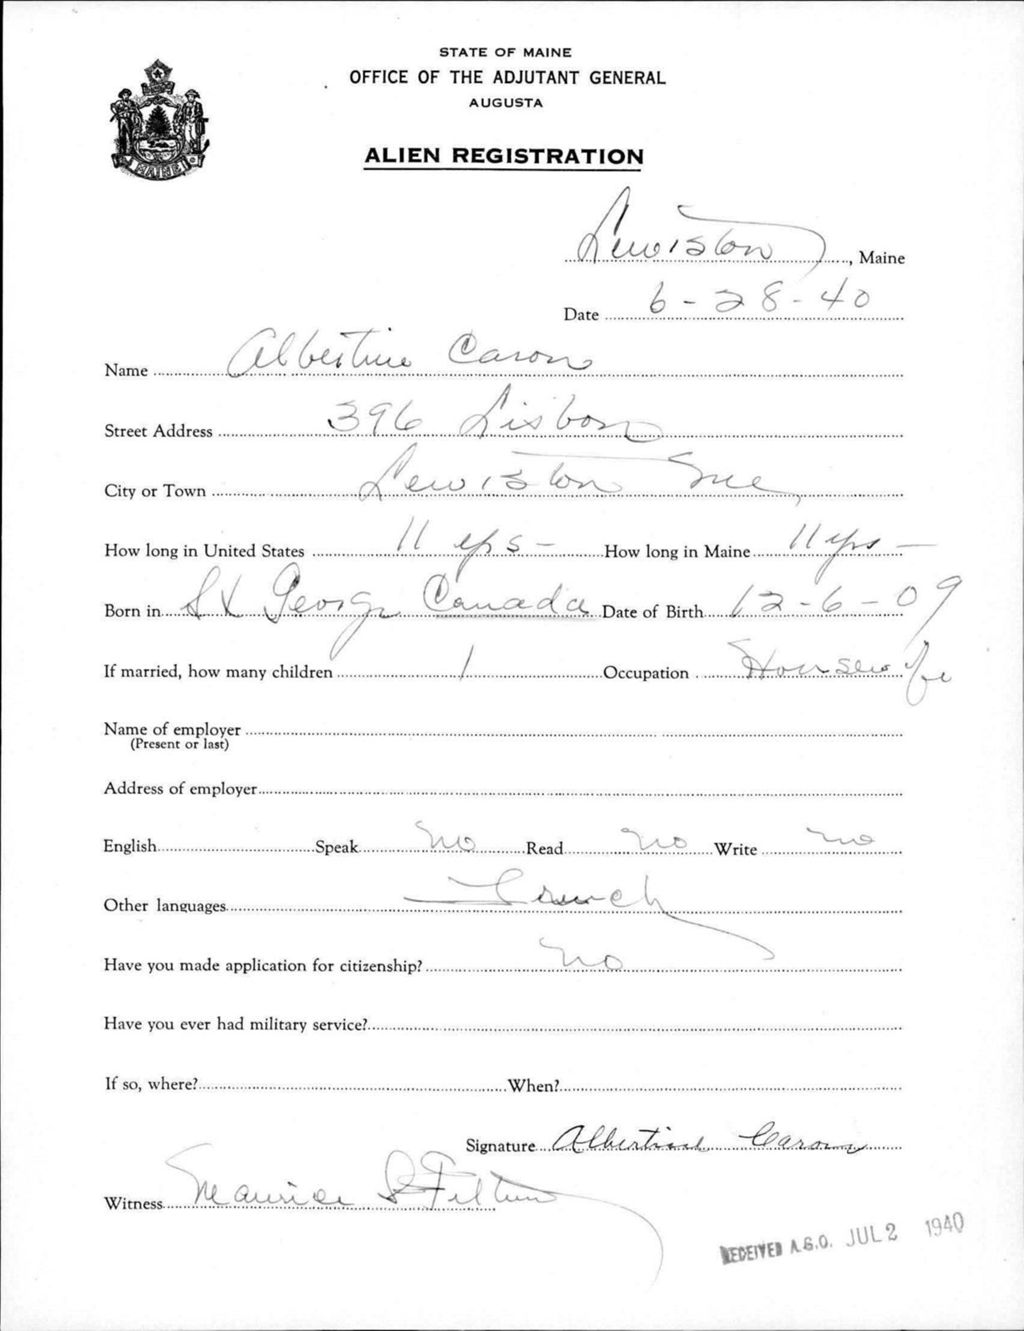 STATE OF MAINE
OFFICE OF THE ADJUTANT GENERAL
AUGUSTA
ALIEN REGISTRATION
MAINE
Lewiston, Maine
Date 6-28-40
Name Albertine Caron
Street Address 396 Lisbon
City or Town Lewiston Me
How long in United States 11 yrs - How long in Maine 11 yrs -
Born in St George Canada Date of Birth 12-6-09
If married, how many children 1 Occupation Housewife
Name of employer
(Present or last)
Address of employer
English Speak no Read no Write no
Other languages French
Have you made application for citizenship? no
Have you ever had military service?
If so, where? When?
Signature Albertine Caron
Witness Maurice
RECEIVED A.G.O. JUL 2 1940